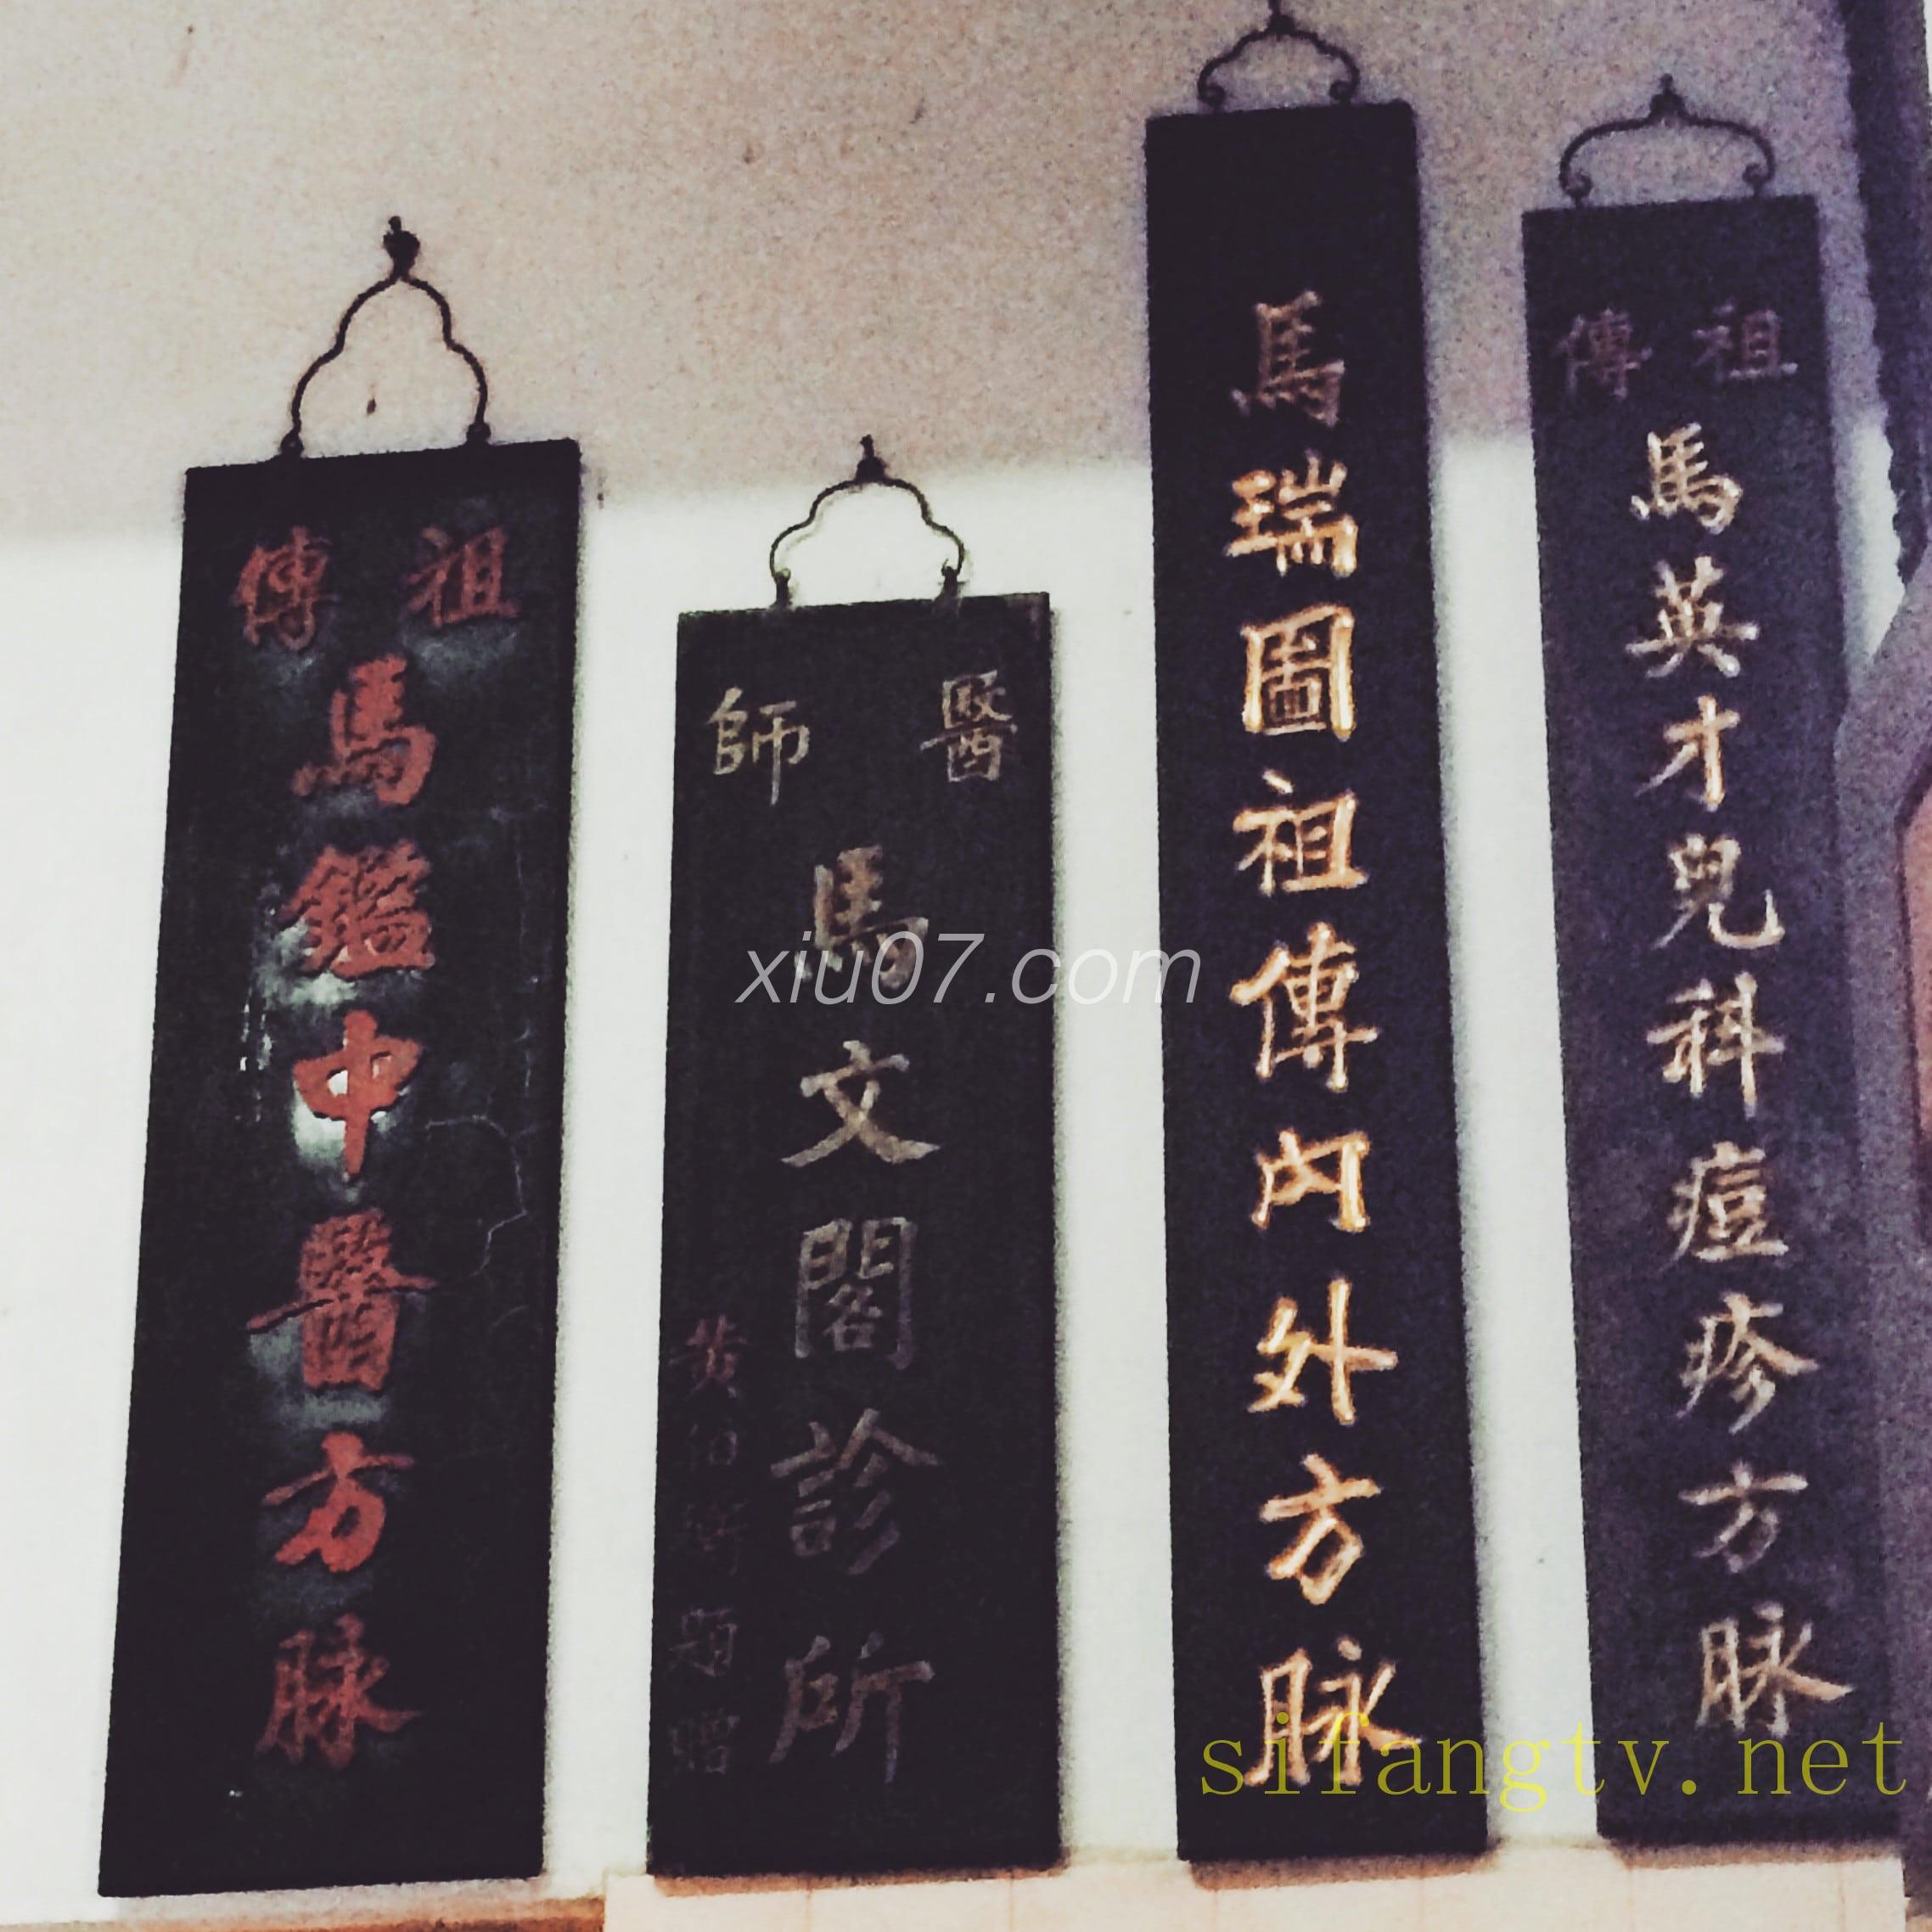 祖傳
馬英才兒科痘疹方脉
馬瑞圖祖傳內外方脉
醫師
馬文閣診所
黃伯 題贈
祖傳
馬鑑中醫方脉
xiu07.com
sifangtv.net